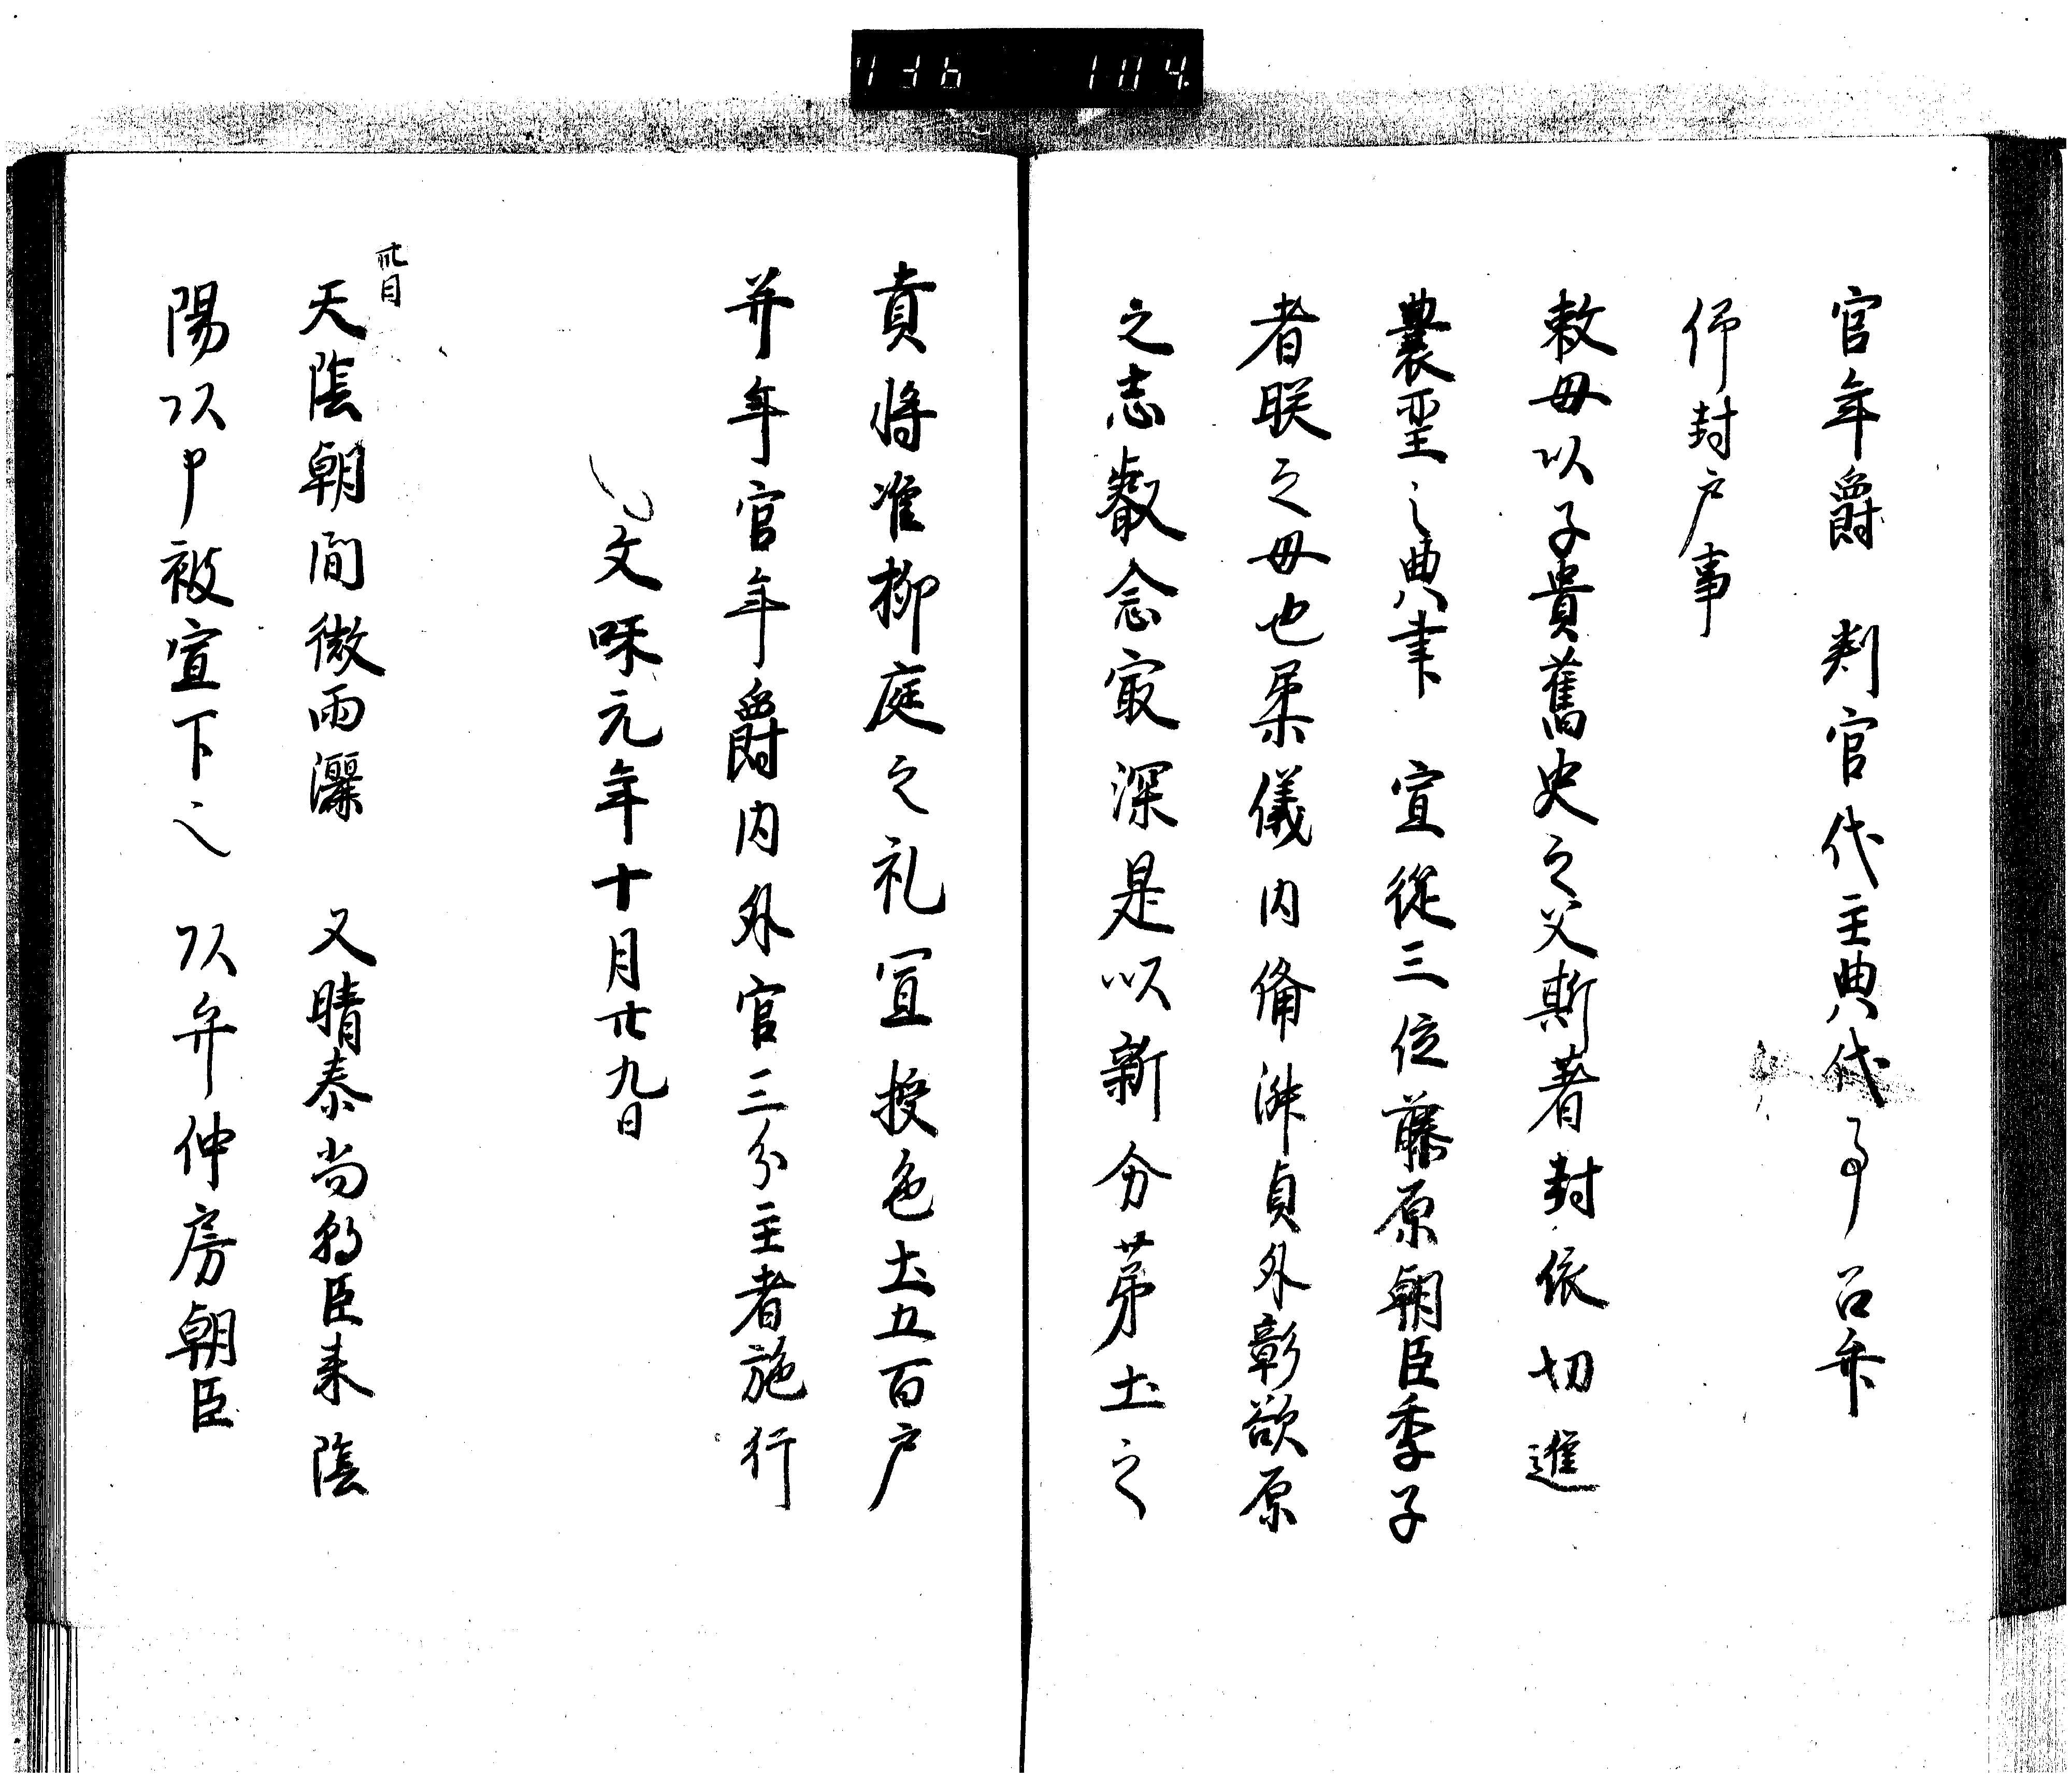 736 104
官年爵 判官代主典代事 召弁
仰封戸事
敕母以子貴舊史之父斯著封依切進
曩聖之典聿 宣從三位藤原朝臣季子
者朕之母也柔儀内俻淋貞外彰欲原
之志叡念寂深是以新分茅土之
賁将准椒庭之礼冝授色土五百户
并年官年爵内外官三分主者施行
文保元年十月廿九日
卅日
天陰朝間微雨灑 又晴泰尚朝臣来陰
陽以下被宣下之 以弁仲房朝臣